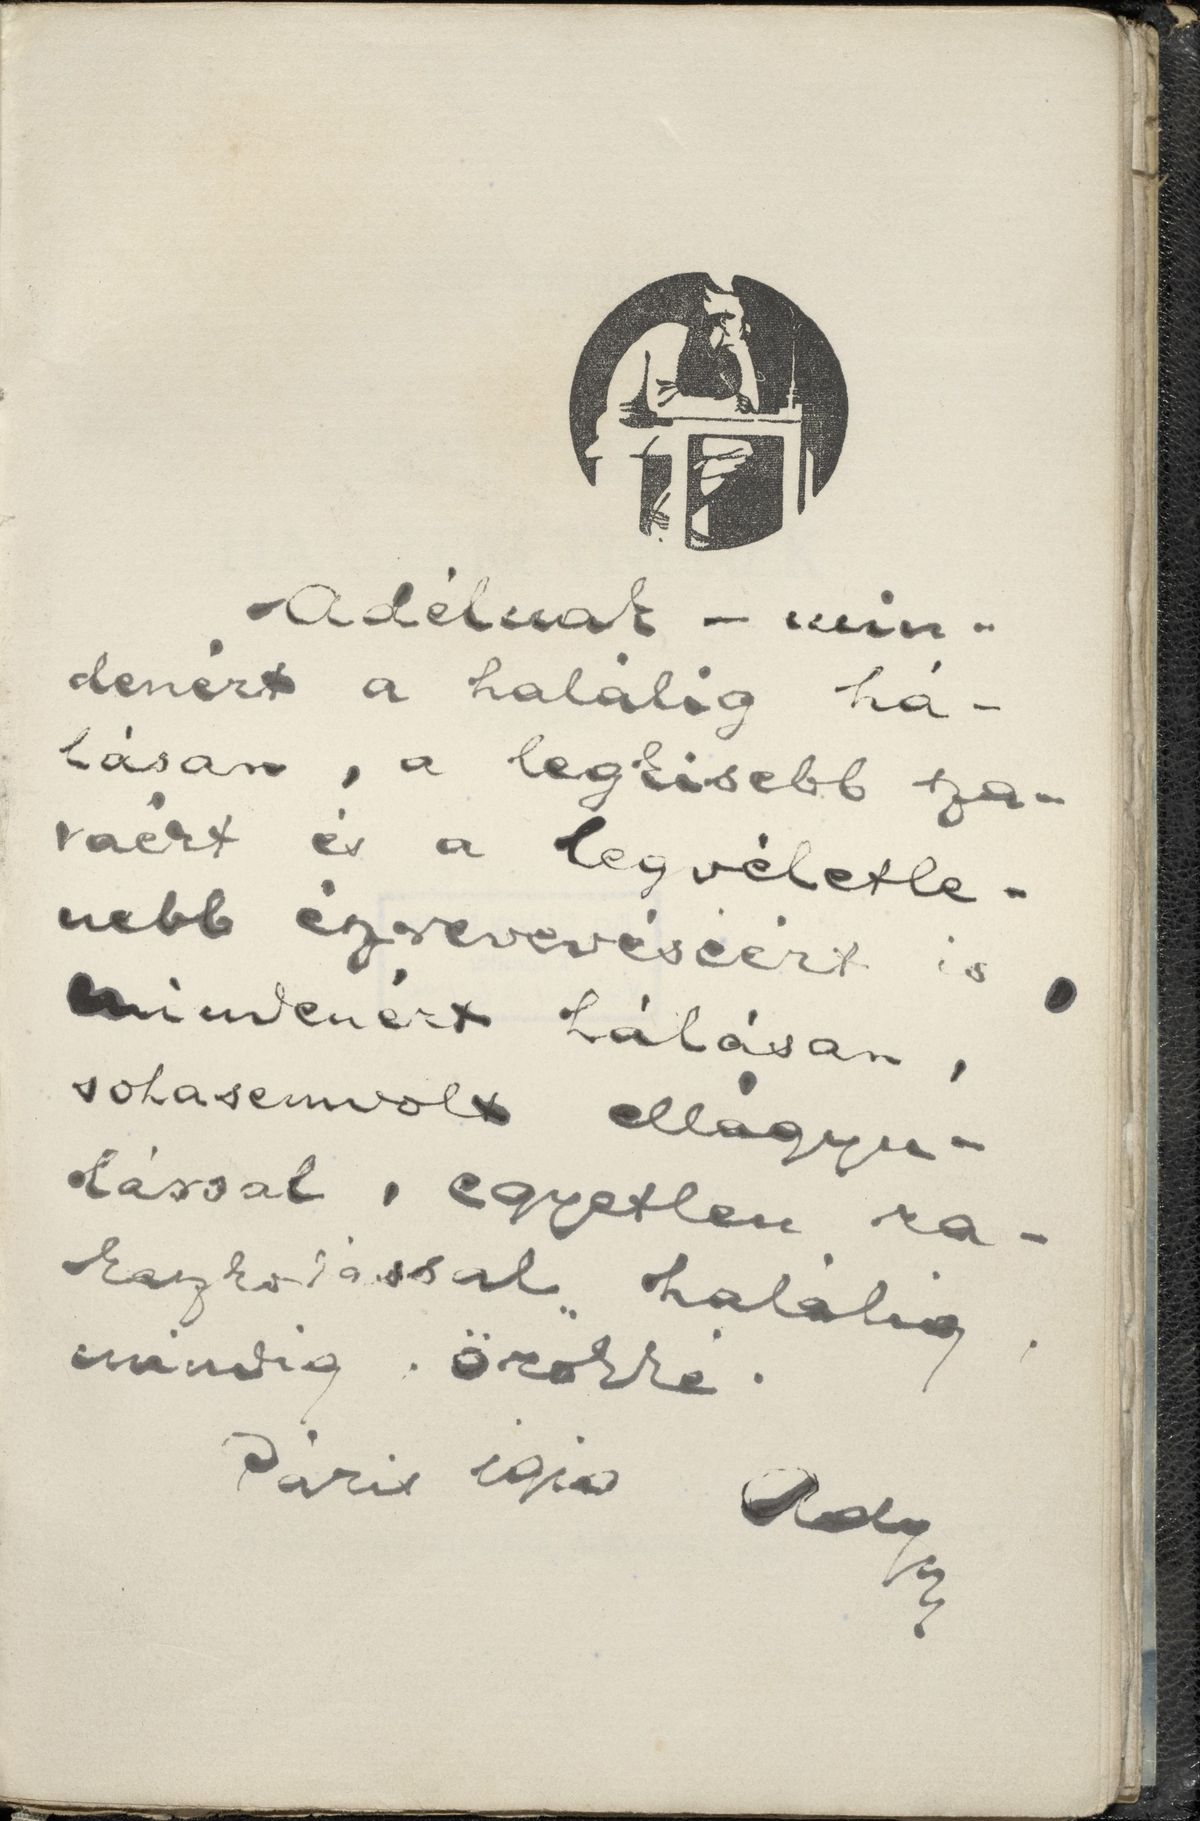 Adélnak – min-
denért a halálig há-
lásan, a legkisebb sza-
váért és a legvéletle-
nebb észrevevéséért is,
mindenért hálásan,
sohasemvolt ellágyu-
lással, egyetlen ra-
gaszkodással, halálig,
mindig, örökké.
Páris 1910 Ady